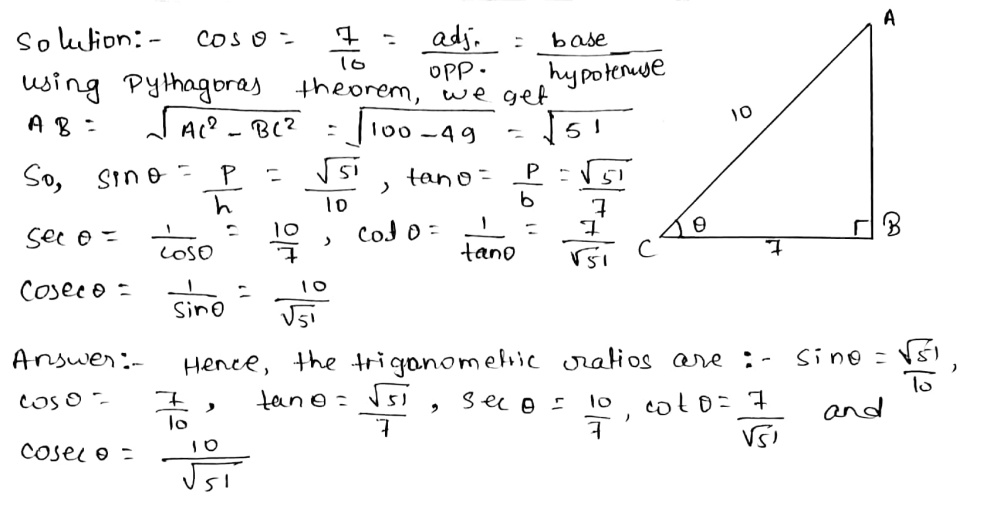 Solution:- cos θ = 7/10 = adj./opp. = base/hypotenuse
using Pythagoras theorem, we get
AB = √AC² - BC² = √100-49 = √51
So, sin θ = P/h = √51/10, tan θ = P/b = √51/7
sec θ = 1/cosθ = 10/7, cot θ = 1/tanθ = 7/√51
Cosec θ = 1/sinθ = 10/√51
Answer:- Hence, the triganometric ratios are :- sin θ = √51/10,
cos θ = 7/10, tan θ = √51/7, sec θ = 10/7, cot θ = 7/√51 and
cosec θ = 10/√51
A
10
θ
C
7
B